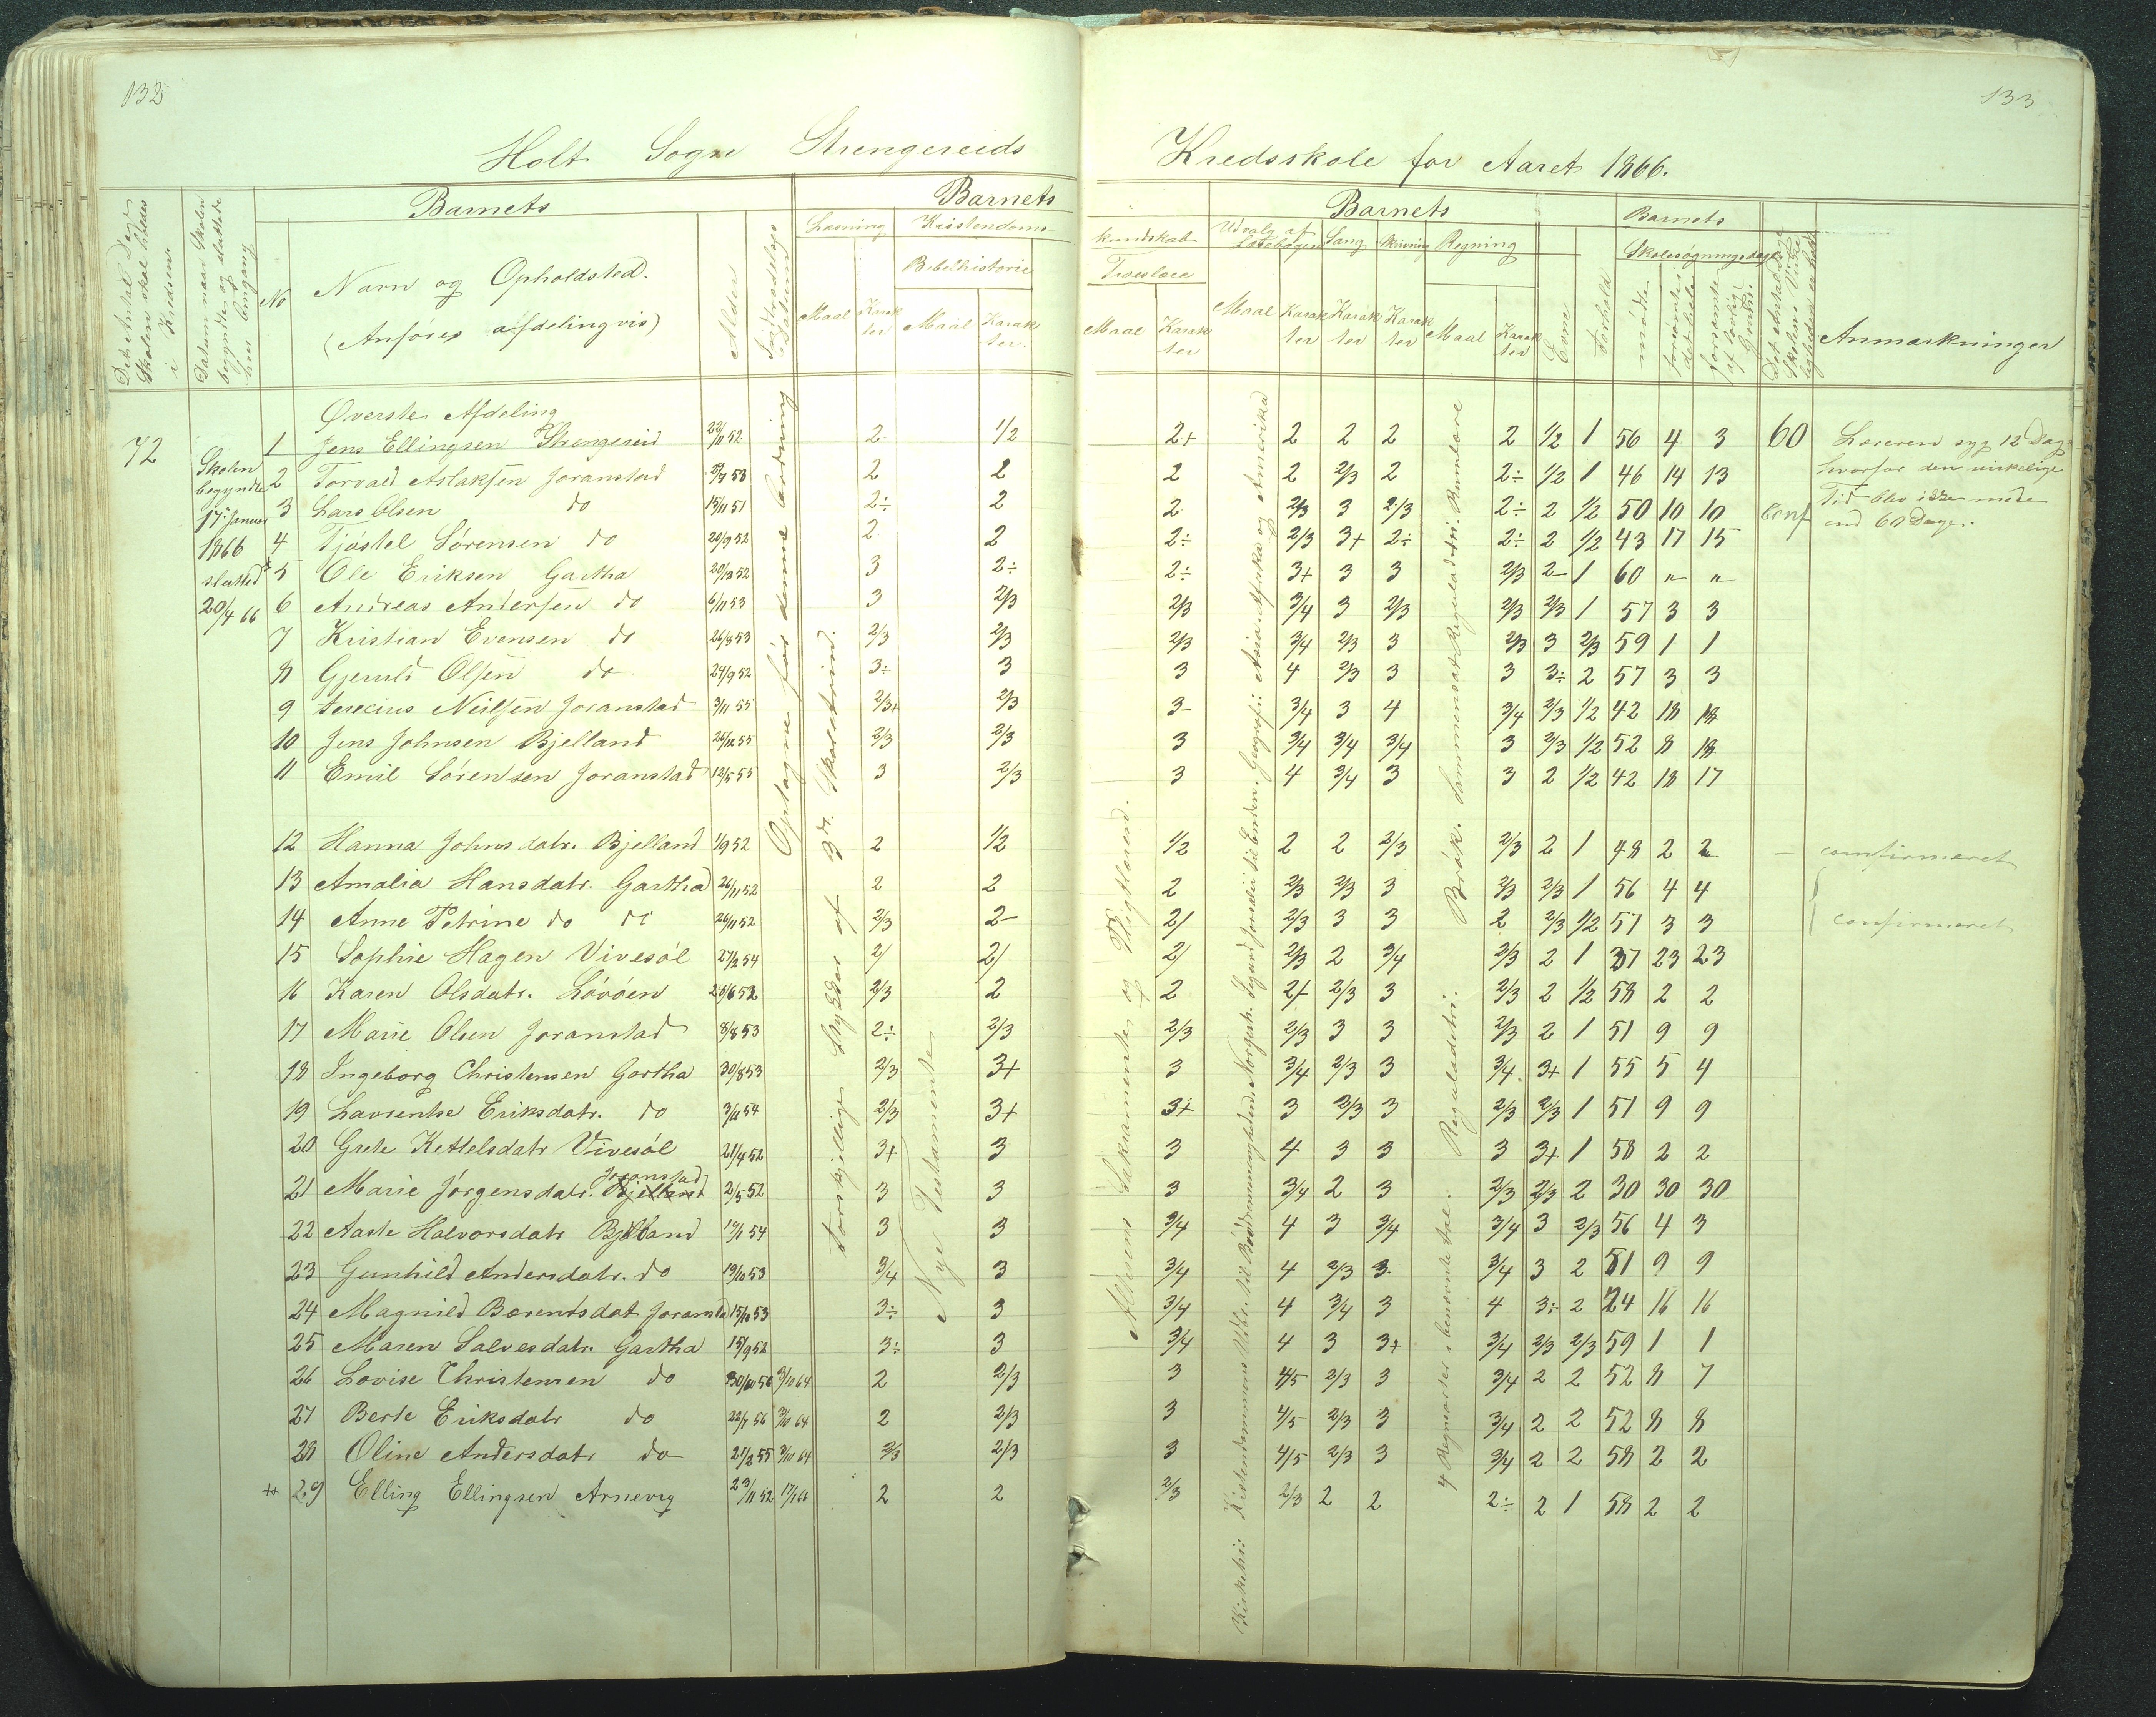 132
133
Holt Sogn Strengereids
Kredsskole for Aaret 1866.
Barnets
Barnets
Barnets
Barnets
Det Antal Dage Skolen skal holdes i Kredsen
Datum naar Skolen begynder og sluttede hver Omgang
No
Navn og Opholdsted.
(Anføres afdelingvis)
Alder
Indtrædelses Datum
Læsning
Kristendoms-
Bibelhistorie
Maal
Karakter
Maal
Karakter.
kundskab
Troeslære
Maal
Karakter
Udvalg af Læsebogen
Maal
Karakter
Sang
Karakter
Skrivning
Karakter
Regning
Maal
Karakter
Evne
Forhold
Skolesøgningsdage
mødte
forsømte i det hele
forsømte af lovlig Grund.
Anmærkninger
Øverste Afdeling
72
Skolen
begyndte
17de Januar
1866
sluttede
20/4 66
1 Jens Ellingsen Strengereid 22/11 52 2 1/2 2+ 2 2 2 2 1/2 1 56 4 3 60
2 Torvald Aslaksen Joranstad 2 2 2 2 2/3 2 2÷ 1/2 1 46 14 13
3 Lars Olsen do 15/11 51 2÷ 2 2 2/3 3 2/3 2÷ 2 1/2 50 10 10 Conf
4 Tjøstel Sørensen do 20/9 52 2 2 2÷ 2/3 3+ 2÷ 2÷ 2 1/2 43 17 15
5 Ole Eriksen Gartha 20/12 52 3 2÷ 2÷ 3+ 3 3 2/3 2- 1 60 " "
6 Andreas Andersen do 6/11 53 3 2/3 2/3 3/4 3 2/3 2/3 2/3 1 57 3 3
7 Kristian Evensen do 26/8 53 2/3 2/3 2/3 3/4 2/3 3 2/3 3 2/3 59 1 1
8 Gjeruld Olsen do 24/9 52 3÷ 3 3 4 2/3 3 3 3÷ 2 57 3 3
9 Neilsen Joranstad 3/11 55 2/3+ 2/3 3- 3/4 3 4 3/4 2/3 1/2 42 18 18
10 Jens Johnsen Bjelland 26/12 55 2/3 2/3 3 3/4 3/4 3/4 3 2/3 1/2 52 8 18
11 Emil Sørensen Joranstad 12/5 55 3 2/3 3 4 3/4 3 3 2 1/2 42 18 17
12 Hanna Johnsdatr. Bjelland 1/9 52 2 1/2 1/2 2 2 2/3 2/3 2 1 48 2 2 confirmeret
13 Amalia Hansdatr. Gartha 26/11 52 2 2 2 2/3 2/3 3 2/3 2/3 1 56 4 4
14 Anne Petrine do do 26/11 52 2/3 2- 2/ 2/3 3 3 2 2/3 1/2 57 3 3 confirmeret
15 Sophie Hagen Vivesøl 27/2 54 2/ 2/ 2/ 2/3 2 3/4 2/3 2 1 37 23 23
16 Karen Olsdatr. Løvøen 25/6 52 2/3 2 2 2+ 2/3 3 2/3 2 1/2 58 2 2
17 Marie Olsen Joranstad 8/8 53 2÷ 2/3 2/3 2/3 3 3 2/3 2 1 51 9 9
18 Ingeborg Christensen Gartha 30/8 53 2/3 3+ 3 3/4 2/3 3 3/4 3+ 1 55 5 4
19 Lavrentse Eriksdatr. do 3/11 54 2/3 3+ 3+ 3 2/3 3 2/3 2/3 1 51 9 9
20 Grete Kettelsdatr Vivesøl 21/4 52 3+ 3 3 4 3 3 3 3+ 1 58 2 2
21 Marie Jørgensdatr. Bjelland Joranstad 2/5 52 3 3 3 3/4 2 3 2/3 2/3 2 30 30 30
22 Aaste Halvorsdatr Bjelland 19/1 54 3 3 3/4 4 3 3/4 3/4 3 2/3 56 4 3
23 Gunhild Andersdatr. do 19/10 53 3/4 3 3/4 4 2/3 3 3/4 3 2 51 9 9
24 Magnild Berentsdat Joranstad 15/10 53 3÷ 3 3/4 4 3/4 3 4 3÷ 2 24 16 16
25 Maren Salvesdatr. Gartha 15/9 52 3÷ 3 3/4 4 3 3+ 3/4 2/3 2/3 59 1 1
26 Lovise Christensen do 30/10 56 3/10 64 2 2/3 3 4/5 2/3 3 3/4 2 2 52 8 7
27 Berte Eriksdatr do 22/7 56 3/10 64 2 2/3 3 4/5 2/3 3 3/4 2 2 52 8 8
28 Oline Andersdatr do 21/2 55 3/10 64 2/3 2/3 3 4/5 2/3 3 3/4 2 2 58 2 2
29 Elling Ellingsen Arnevig 23/11 52 17/1 66 2 2 2/3 2/3 2 2 2÷ 2 1 58 2 2
Læreren syg 12 Dage
hvorfor den virkelige
Tid blev ikke mere
end 60 Dage.
Optagne før denne Ordning
Forskjellige Stykker af 3die Skoletrin.
Nye Testamente
Alterens Sakramente og Vigtbørn.
Geografi: Asia, Afrika og Amerika
4 Regnearter i benævnte tal. Reguladetri. Brøk. Sammensat Reguladetri.